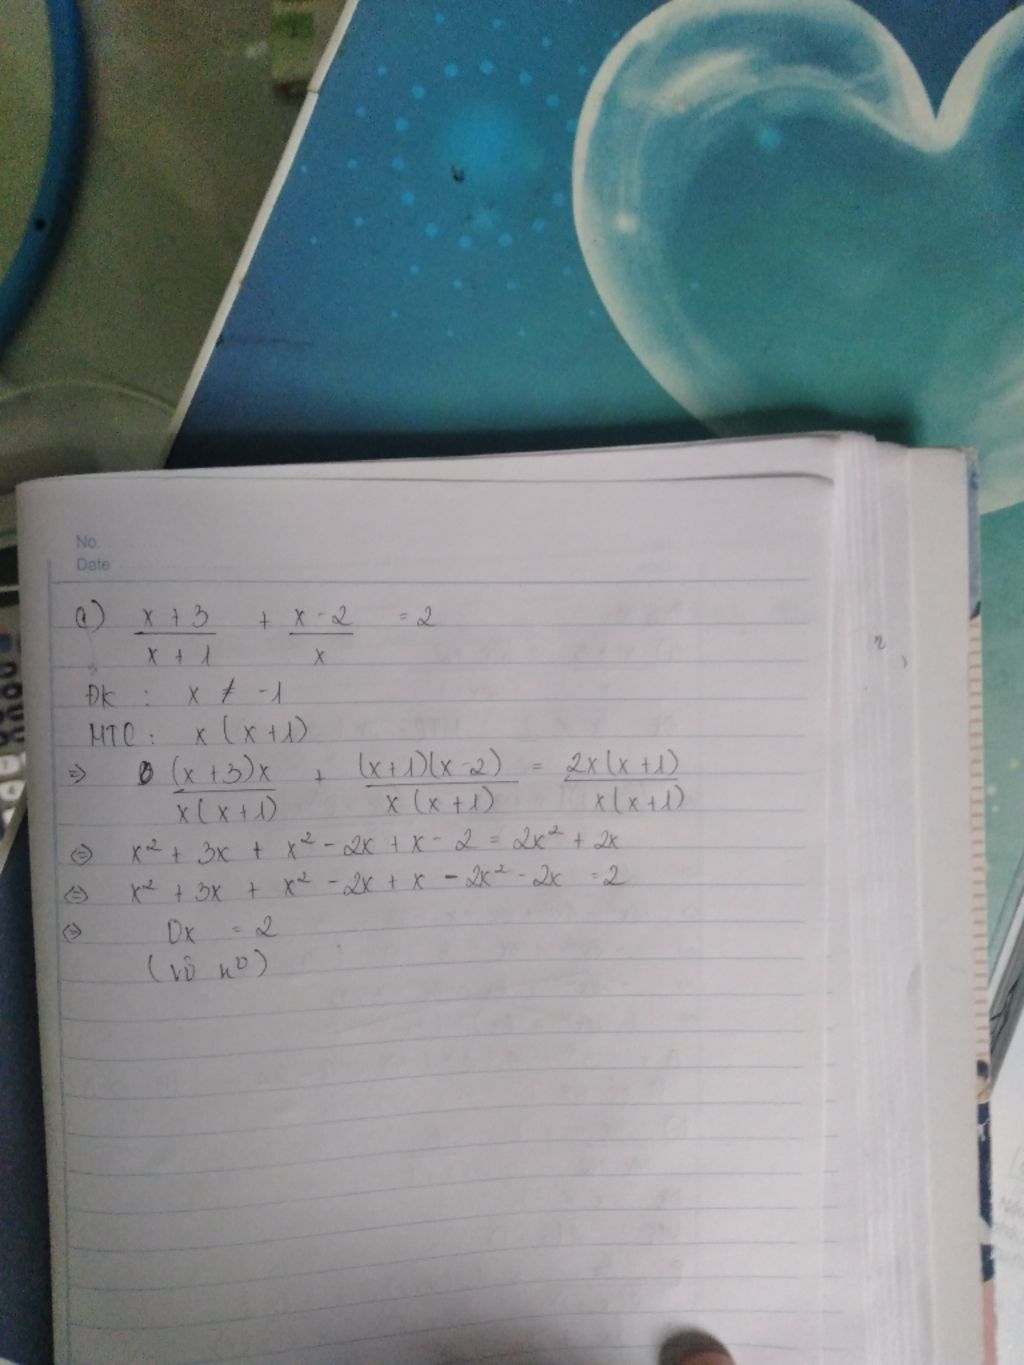 No.
Date
a) x + 3 / x + 1 + x - 2 / x = 2
ĐK : x ≠ -1
MTC : x (x + 1)
=> (x + 3)x / x (x + 1) + (x+1)(x-2) / x (x + 1) = 2x (x + 1) / x (x + 1)
<=> x² + 3x + x² - 2x + x - 2 = 2x² + 2x
<=> x² + 3x + x² - 2x + x - 2x² - 2x = 2
<=> 0x = 2
(vô n⁰)